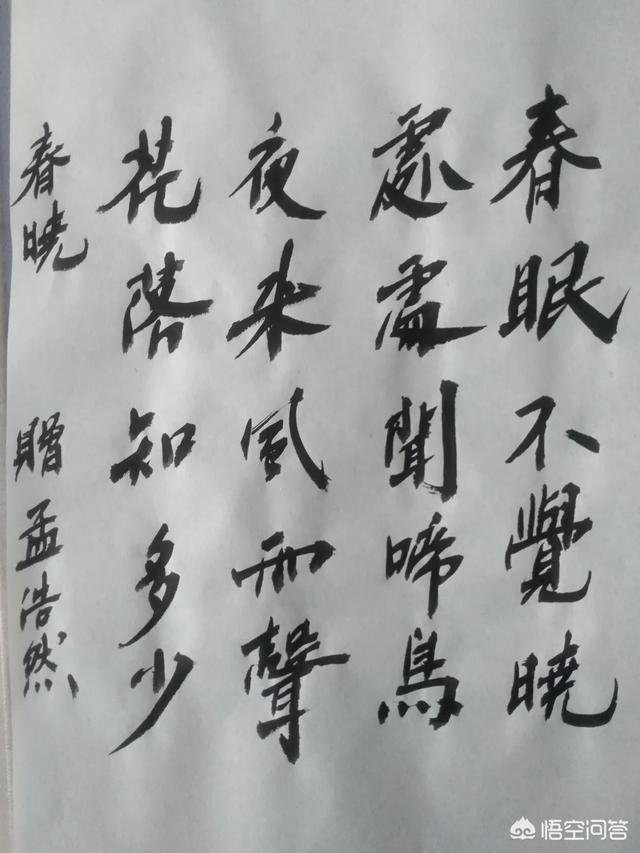 春眠不覺曉
處處聞啼鳥
夜来風雨聲
花落知多少
春曉 贈孟浩然
悟空问答